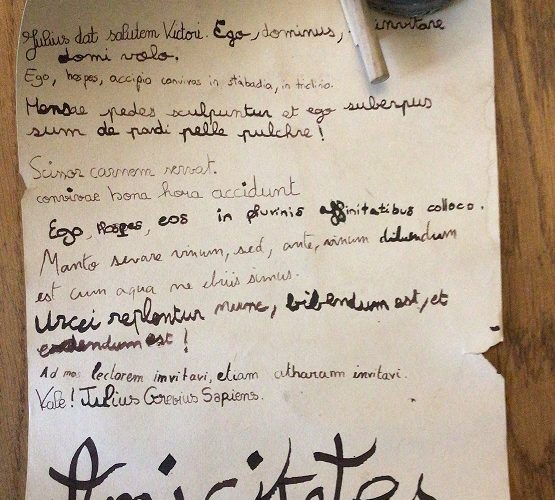 Julius dat salutem Victori. Ego, dominus, invitare
domi volo.
Ego, hospes, accipio convivas in stabadia, in triclinio.
Mensae pedes sculpuntur et ego suberpus
sum de pardi pelle pulchre!
Scissor carnem servat.
convivae bona hora accidunt
Ego, Hospes, eos in plurinis affinitatibus colloco.
Manto sevare vinum, sed, ante, vinum diluendum
est cum aqua ne ebriis simus.
Urcei replentur nunc, bibendum est, et
edendum est!
Ad mos lectorem invitavi, etiam citharam invitavi.
Vale! Julius Grevius Sapiens.
Amicitates